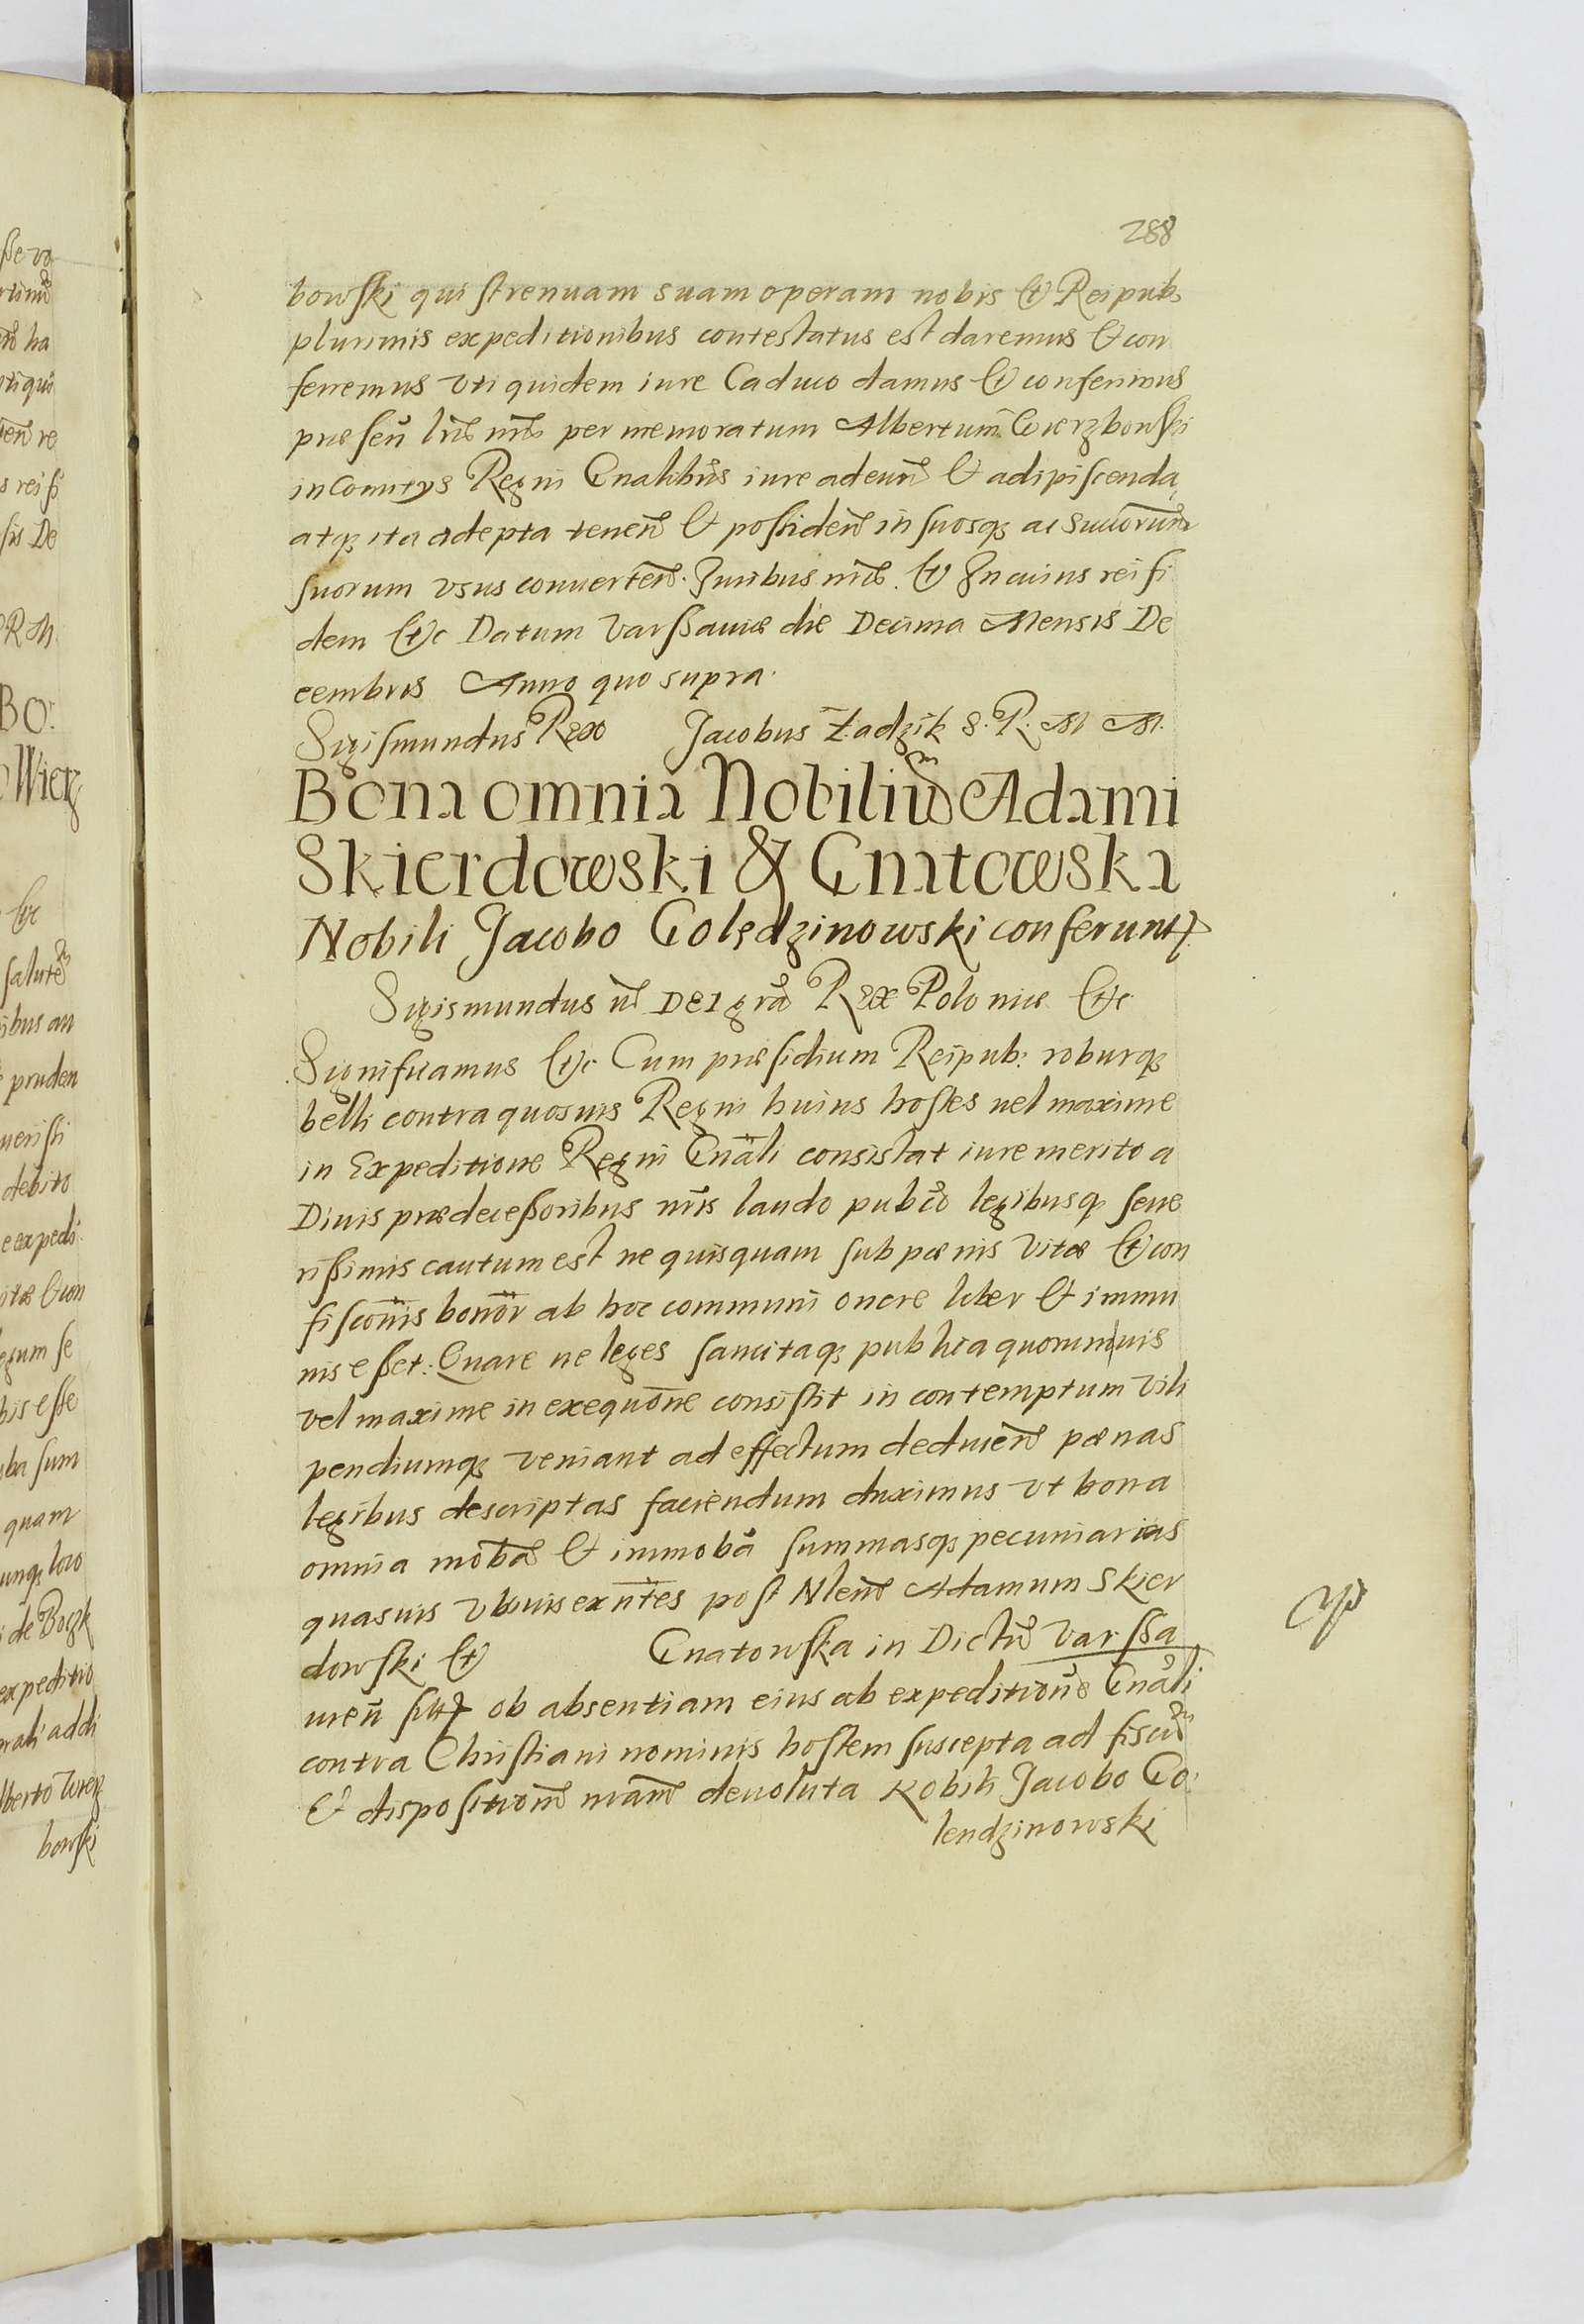 288
bowski qui strenuam suam operam nobis & Reipub:
plurimis expeditionibus contestatus est daremus & con
ferremus vti quidem iure Caduco damus & conferimus
præsen̄ lrīs nrīs per memoratum Albertum Wierzbowski
in Comitys Regni Gnalibus iure adeun̄ & adipiscenda,
atq; ita adepta tenen̄ & possiden̄ in suosq; ac succorum
suorum vsus conuerten̄. Juribus nrīs & In cuius rei fi
dem &c Datum Varssauiæ die Decima Mensis De
cembris Anno quo supra.
Sigismundus Rex Jacobus Zadzik S. R. M M.
Bona omnia Nobilium Adami
Skierdowski & Gnatowska
Nobili Jacobo Golędzinowski conferuntr
Sigismundus III DEI grā Rex Poloniæ &c
Significamus &c Cum præsidium Reipub: roburq;
belli contra quosuis Regni huius hostes uel maxime
in Expeditione Regni Gnāli consistat iure merito a
Diuis prædecessoribus nrīs laudo pubco legibusq; seue
rissimis cautum est ne quisquam sub pænis vitæ & con
fisconīs bonor ab hoc communi onere liber & immu
nis esset: Quare ne leges sancitaq; publica quorum uis
vel maxime in exequōne consistit in contemptum vili
pendiumq; veniant ad effectum deducen̄ pænas
legibus descriptas faciendum duximus vt bona
omnia mobā & immobā summasq; pecuniarias
quasuis vbiuis exn̄tes post Nlem Adamum Skier
dowski & Gnatowska in Dictū Varssa
uien̄ sitt ob absentiam eius ab expeditione Gnāli
contra Christiani nominis hostem suscepta ad fiscum
& dispositionē nram̄ deuoluta Nobili Jacobo Go:
lendzinowski